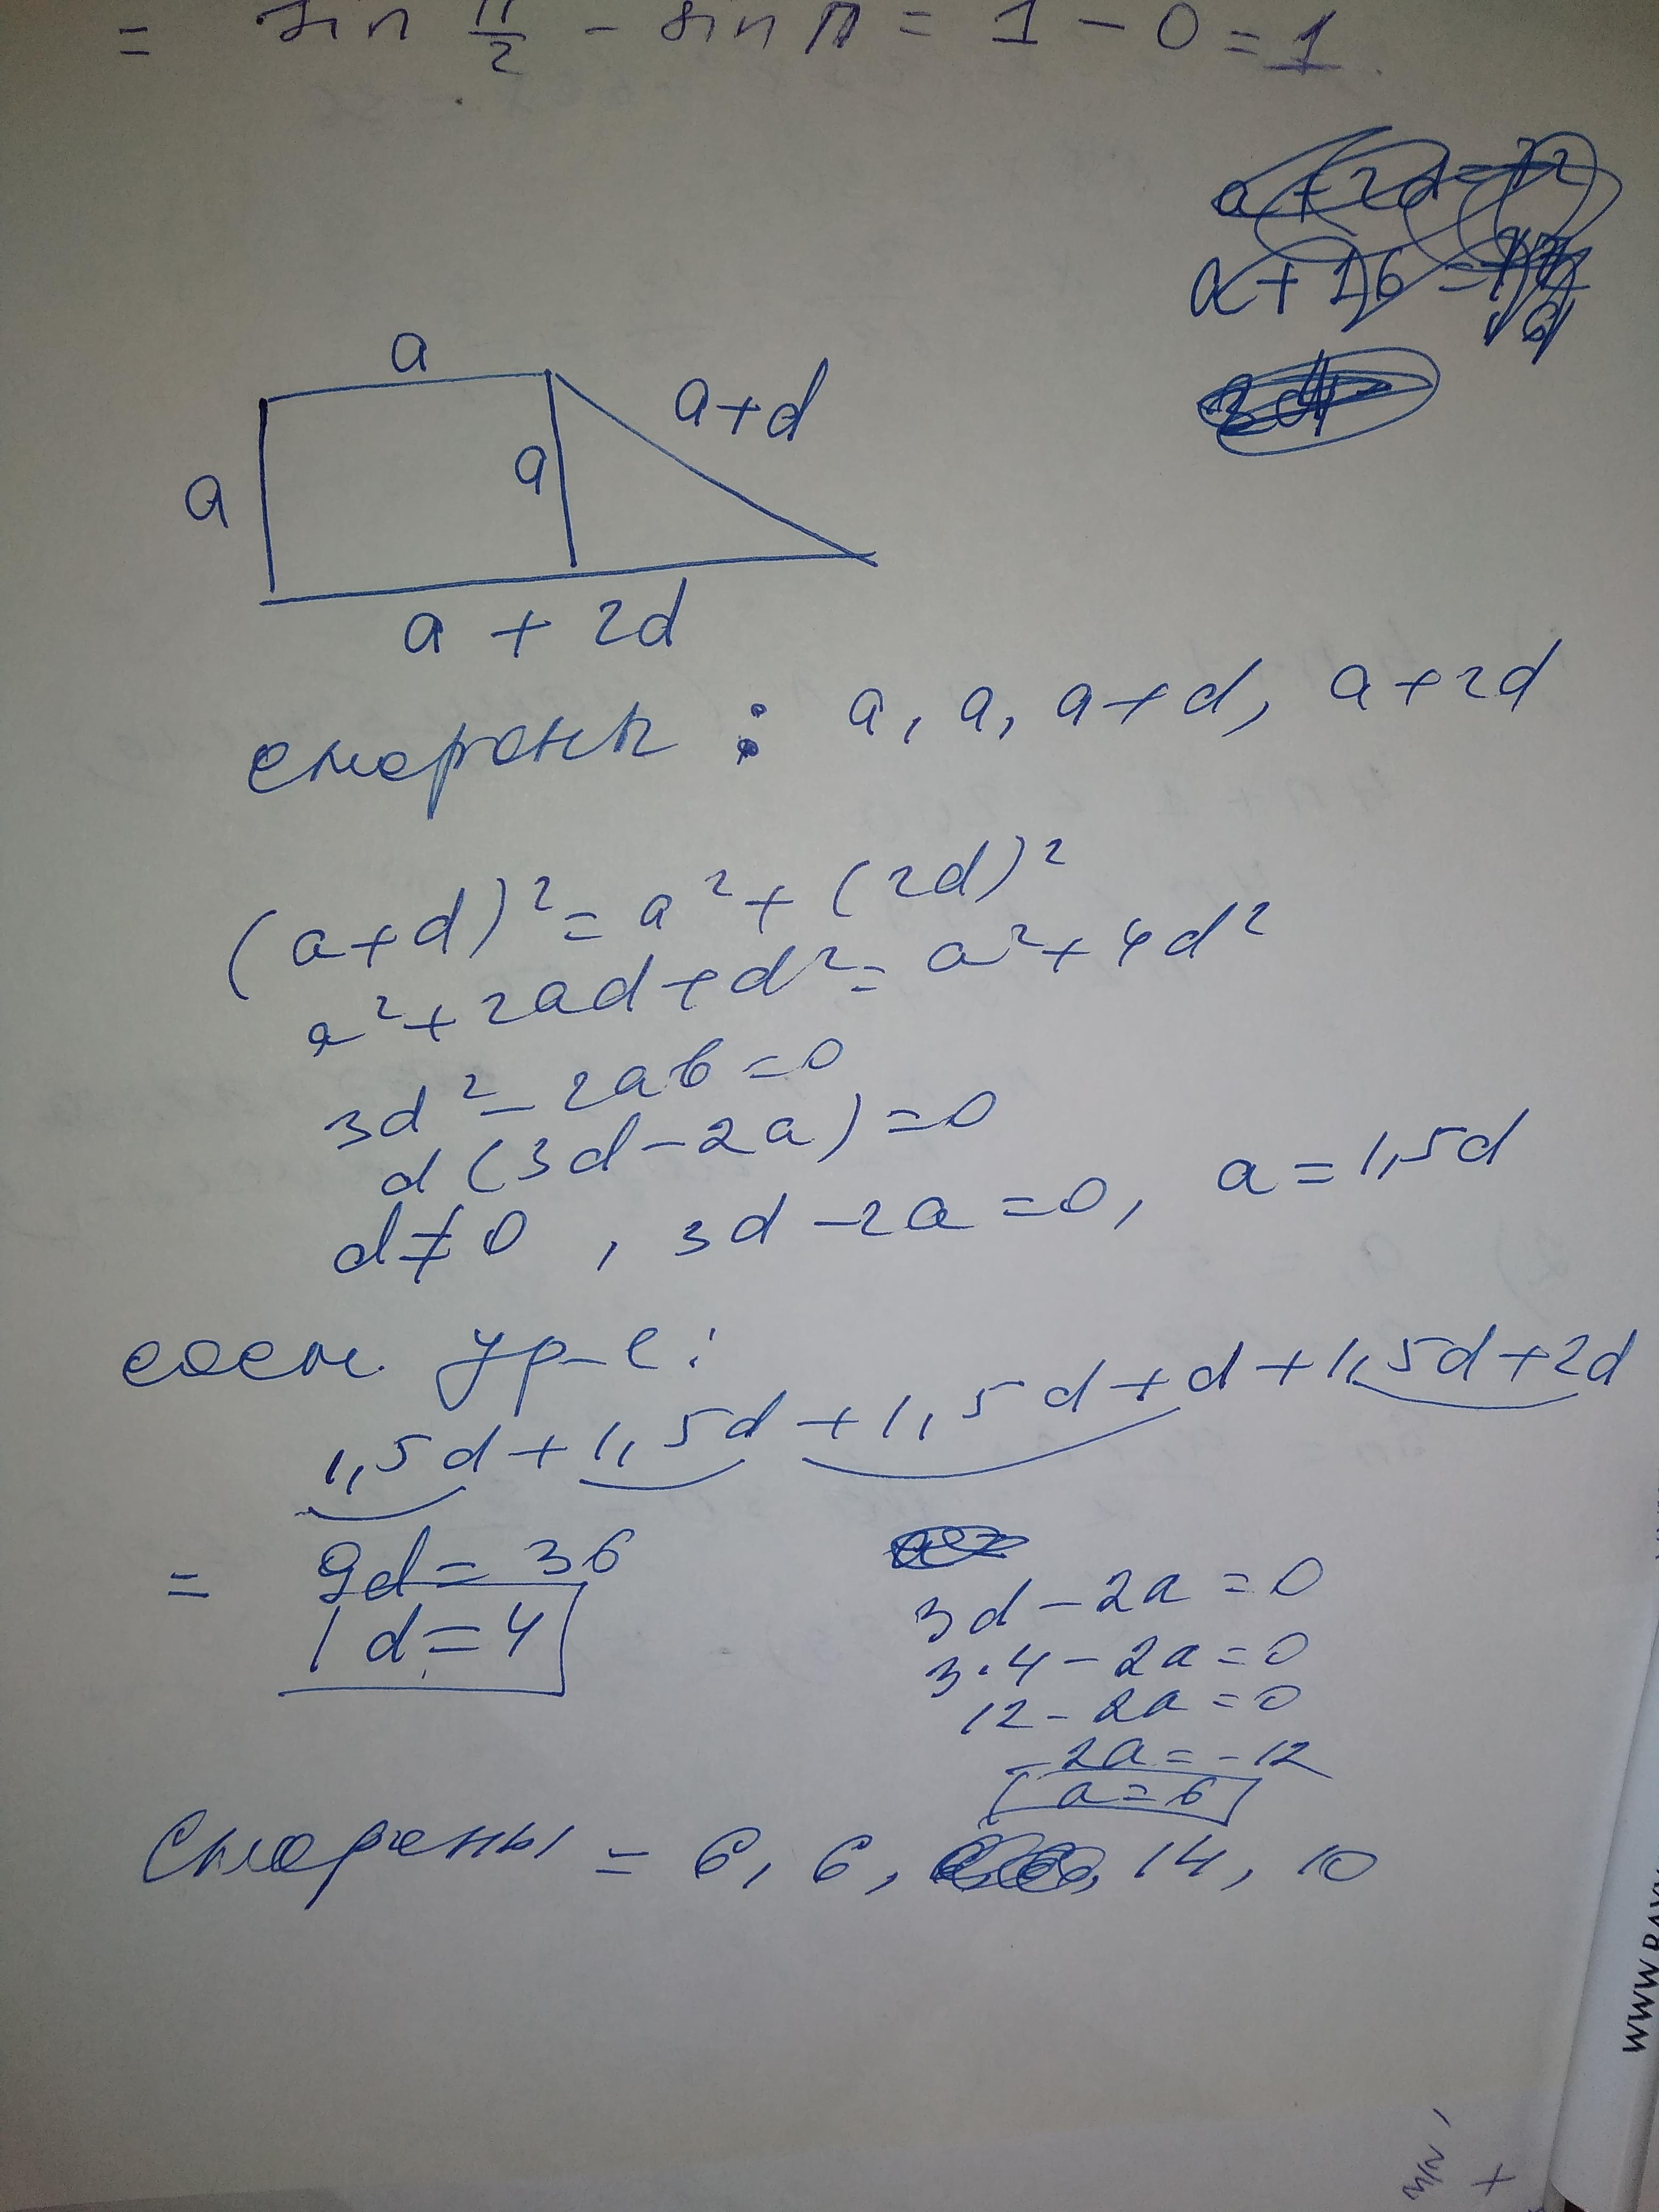 = sin π/2 - sin π = 1 - 0 = 1
a + 2d = 72
a + 16 =
a
a + d
a
a
a + 2d
стороны : a, a, a+d, a+2d
(a+d)² = a² + (2d)²
a² + 2ad + d² = a² + 4d²
3d² - 2aб = 0
d (3d - 2a) = 0
d ≠ 0 , 3d - 2a = 0, a = 1,5d
сост. ур-е:
1,5d + 1,5d + 1,5d + d + 1,5d + 2d
= 9d = 36
d = 4
3d - 2a = 0
3·4 - 2a = 0
12 - 2a = 0
-2a = -12
a = 6
Стороны = 6, 6, 14, 10